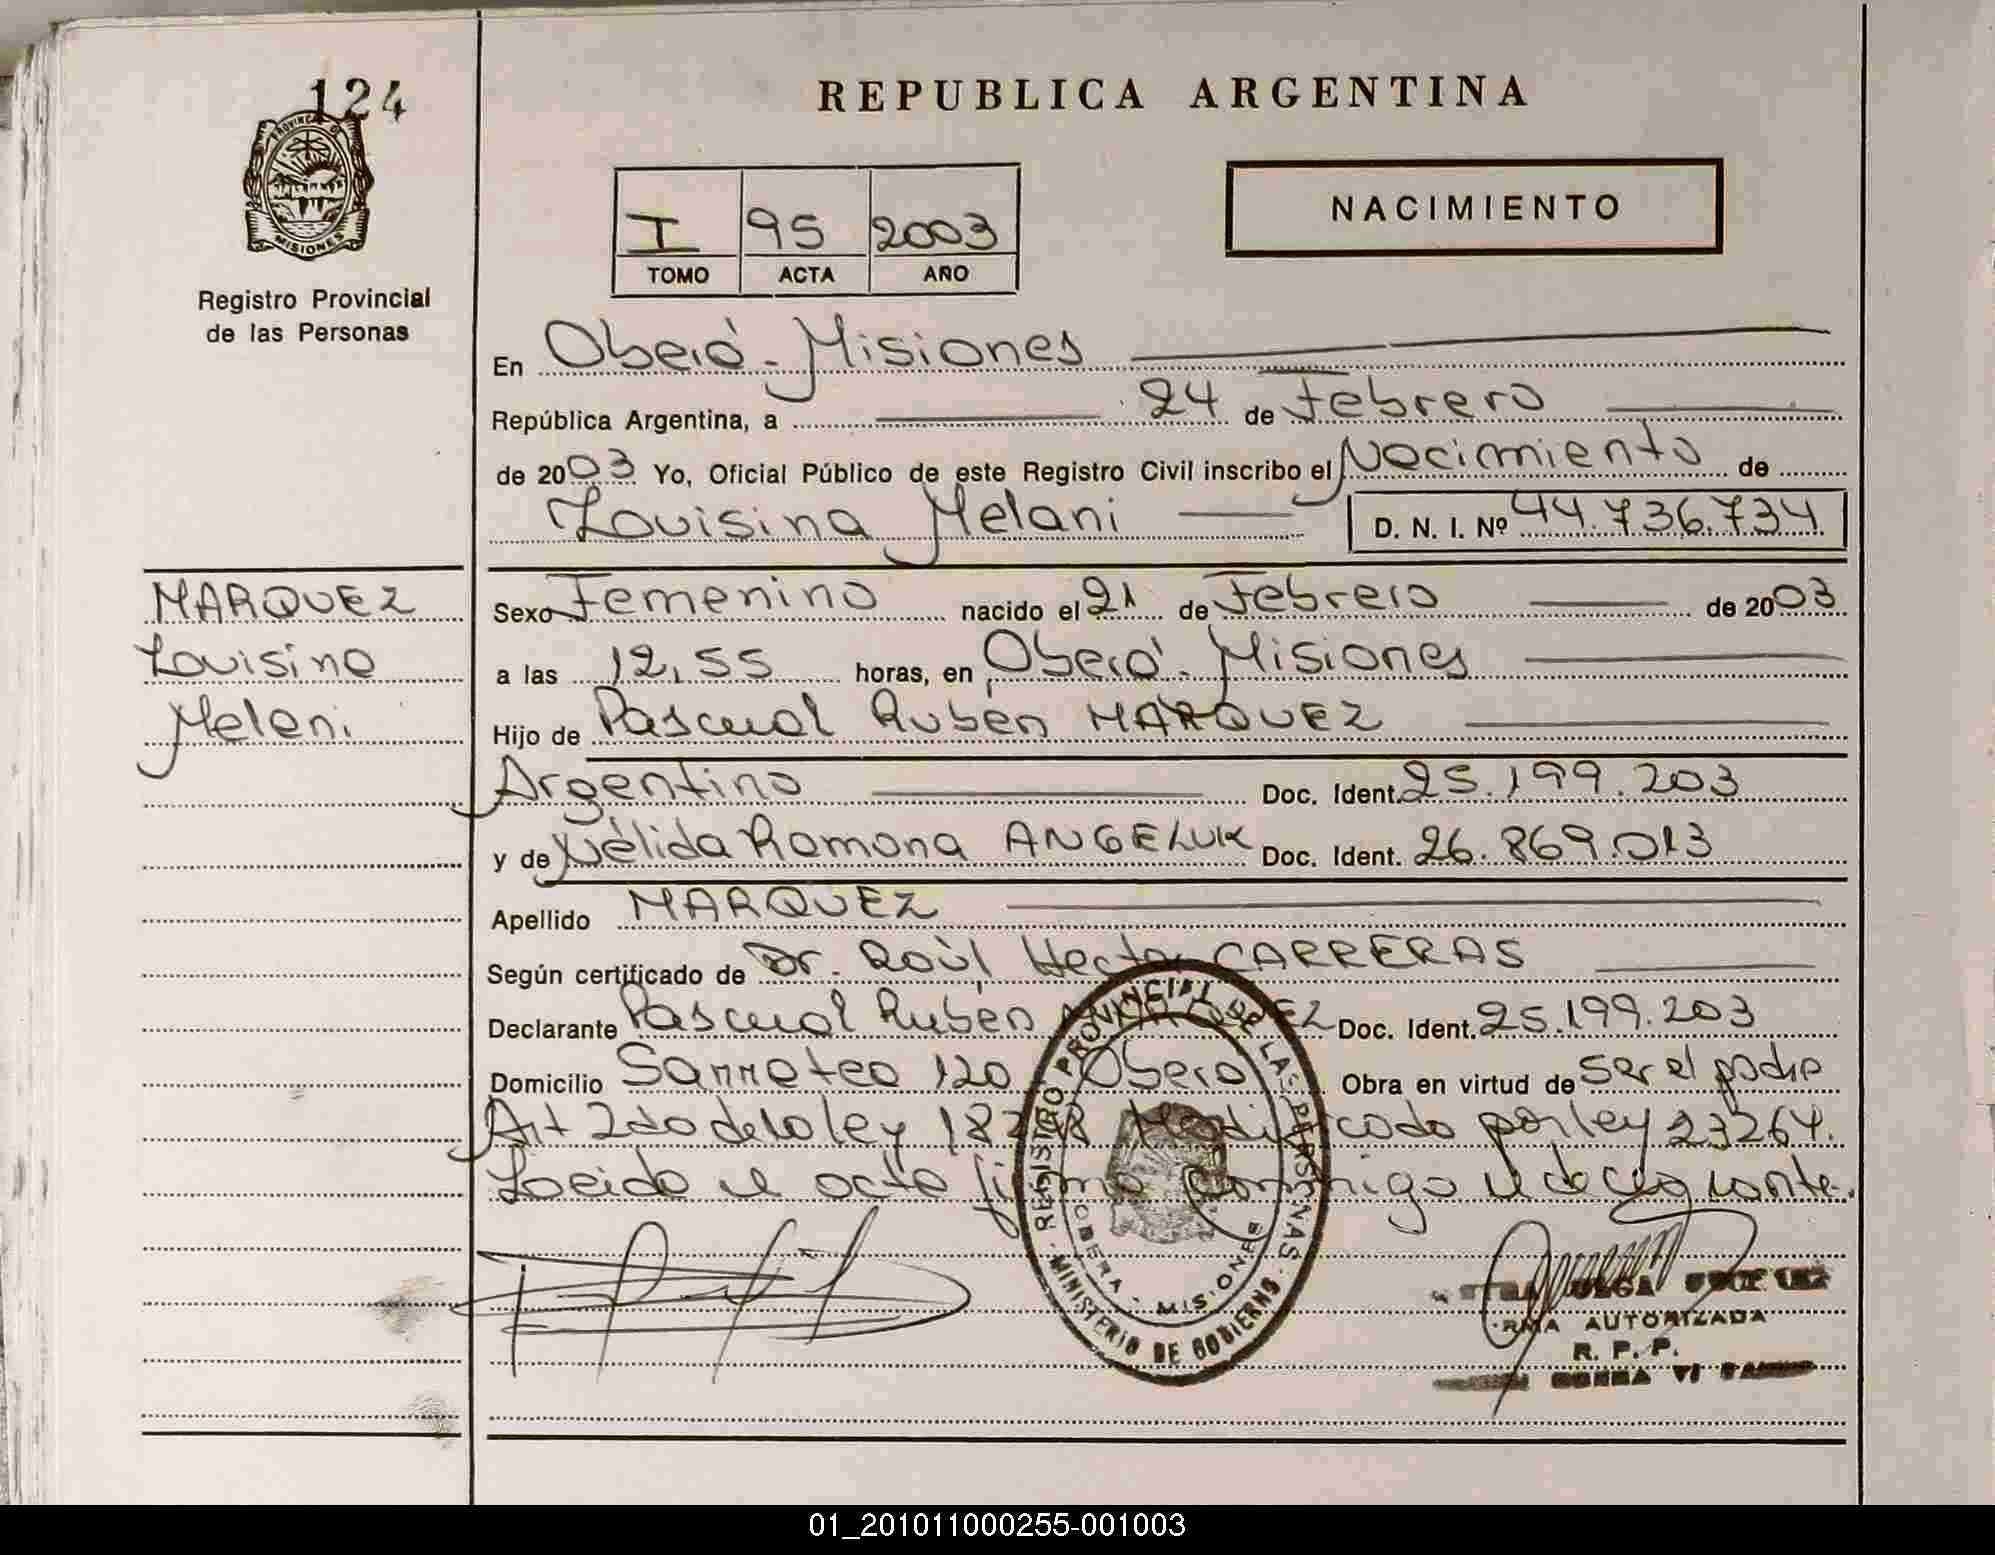 124
PROVINCIA DE
MISIONES
Registro Provincial
de las Personas
REPUBLICA ARGENTINA
I 95 2003
TOMO ACTA AÑO
NACIMIENTO
En Oberá - Misiones
República Argentina, a 24 de Febrero
de 2003 Yo, Oficial Público de este Registro Civil inscribo el Nacimiento de
Louisina Melani D. N. I. Nº 44.736.734
MARQUEZ
Louisina
Melani
Sexo Femenino nacido el 21 de Febrero de 2003
a las 12,55 horas, en Oberá - Misiones
Hijo de Pascual Rubén MARQUEZ
Argentino Doc. Ident. 25.199.203
y de Nélida Ramona ANGELUK Doc. Ident. 26.869.013
Apellido MARQUEZ
Según certificado de Dr. Raúl Hector CARRERAS
Declarante Pascual Rubén MARQUEZ Doc. Ident. 25.199.203
Domicilio Sarmiento 120 Oberá Obra en virtud de ser el padre
Art 2do de la ley 18248 Modificado por ley 23264.
Leida el acta firma conmigo el declarante.
REGISTRO PROVINCIAL DE LAS PERSONAS
MINISTERIO DE GOBIERNO
OBERA - MISIONES
OLGA
FIRMA AUTORIZADA
R. P. P.
01_201011000255-001003